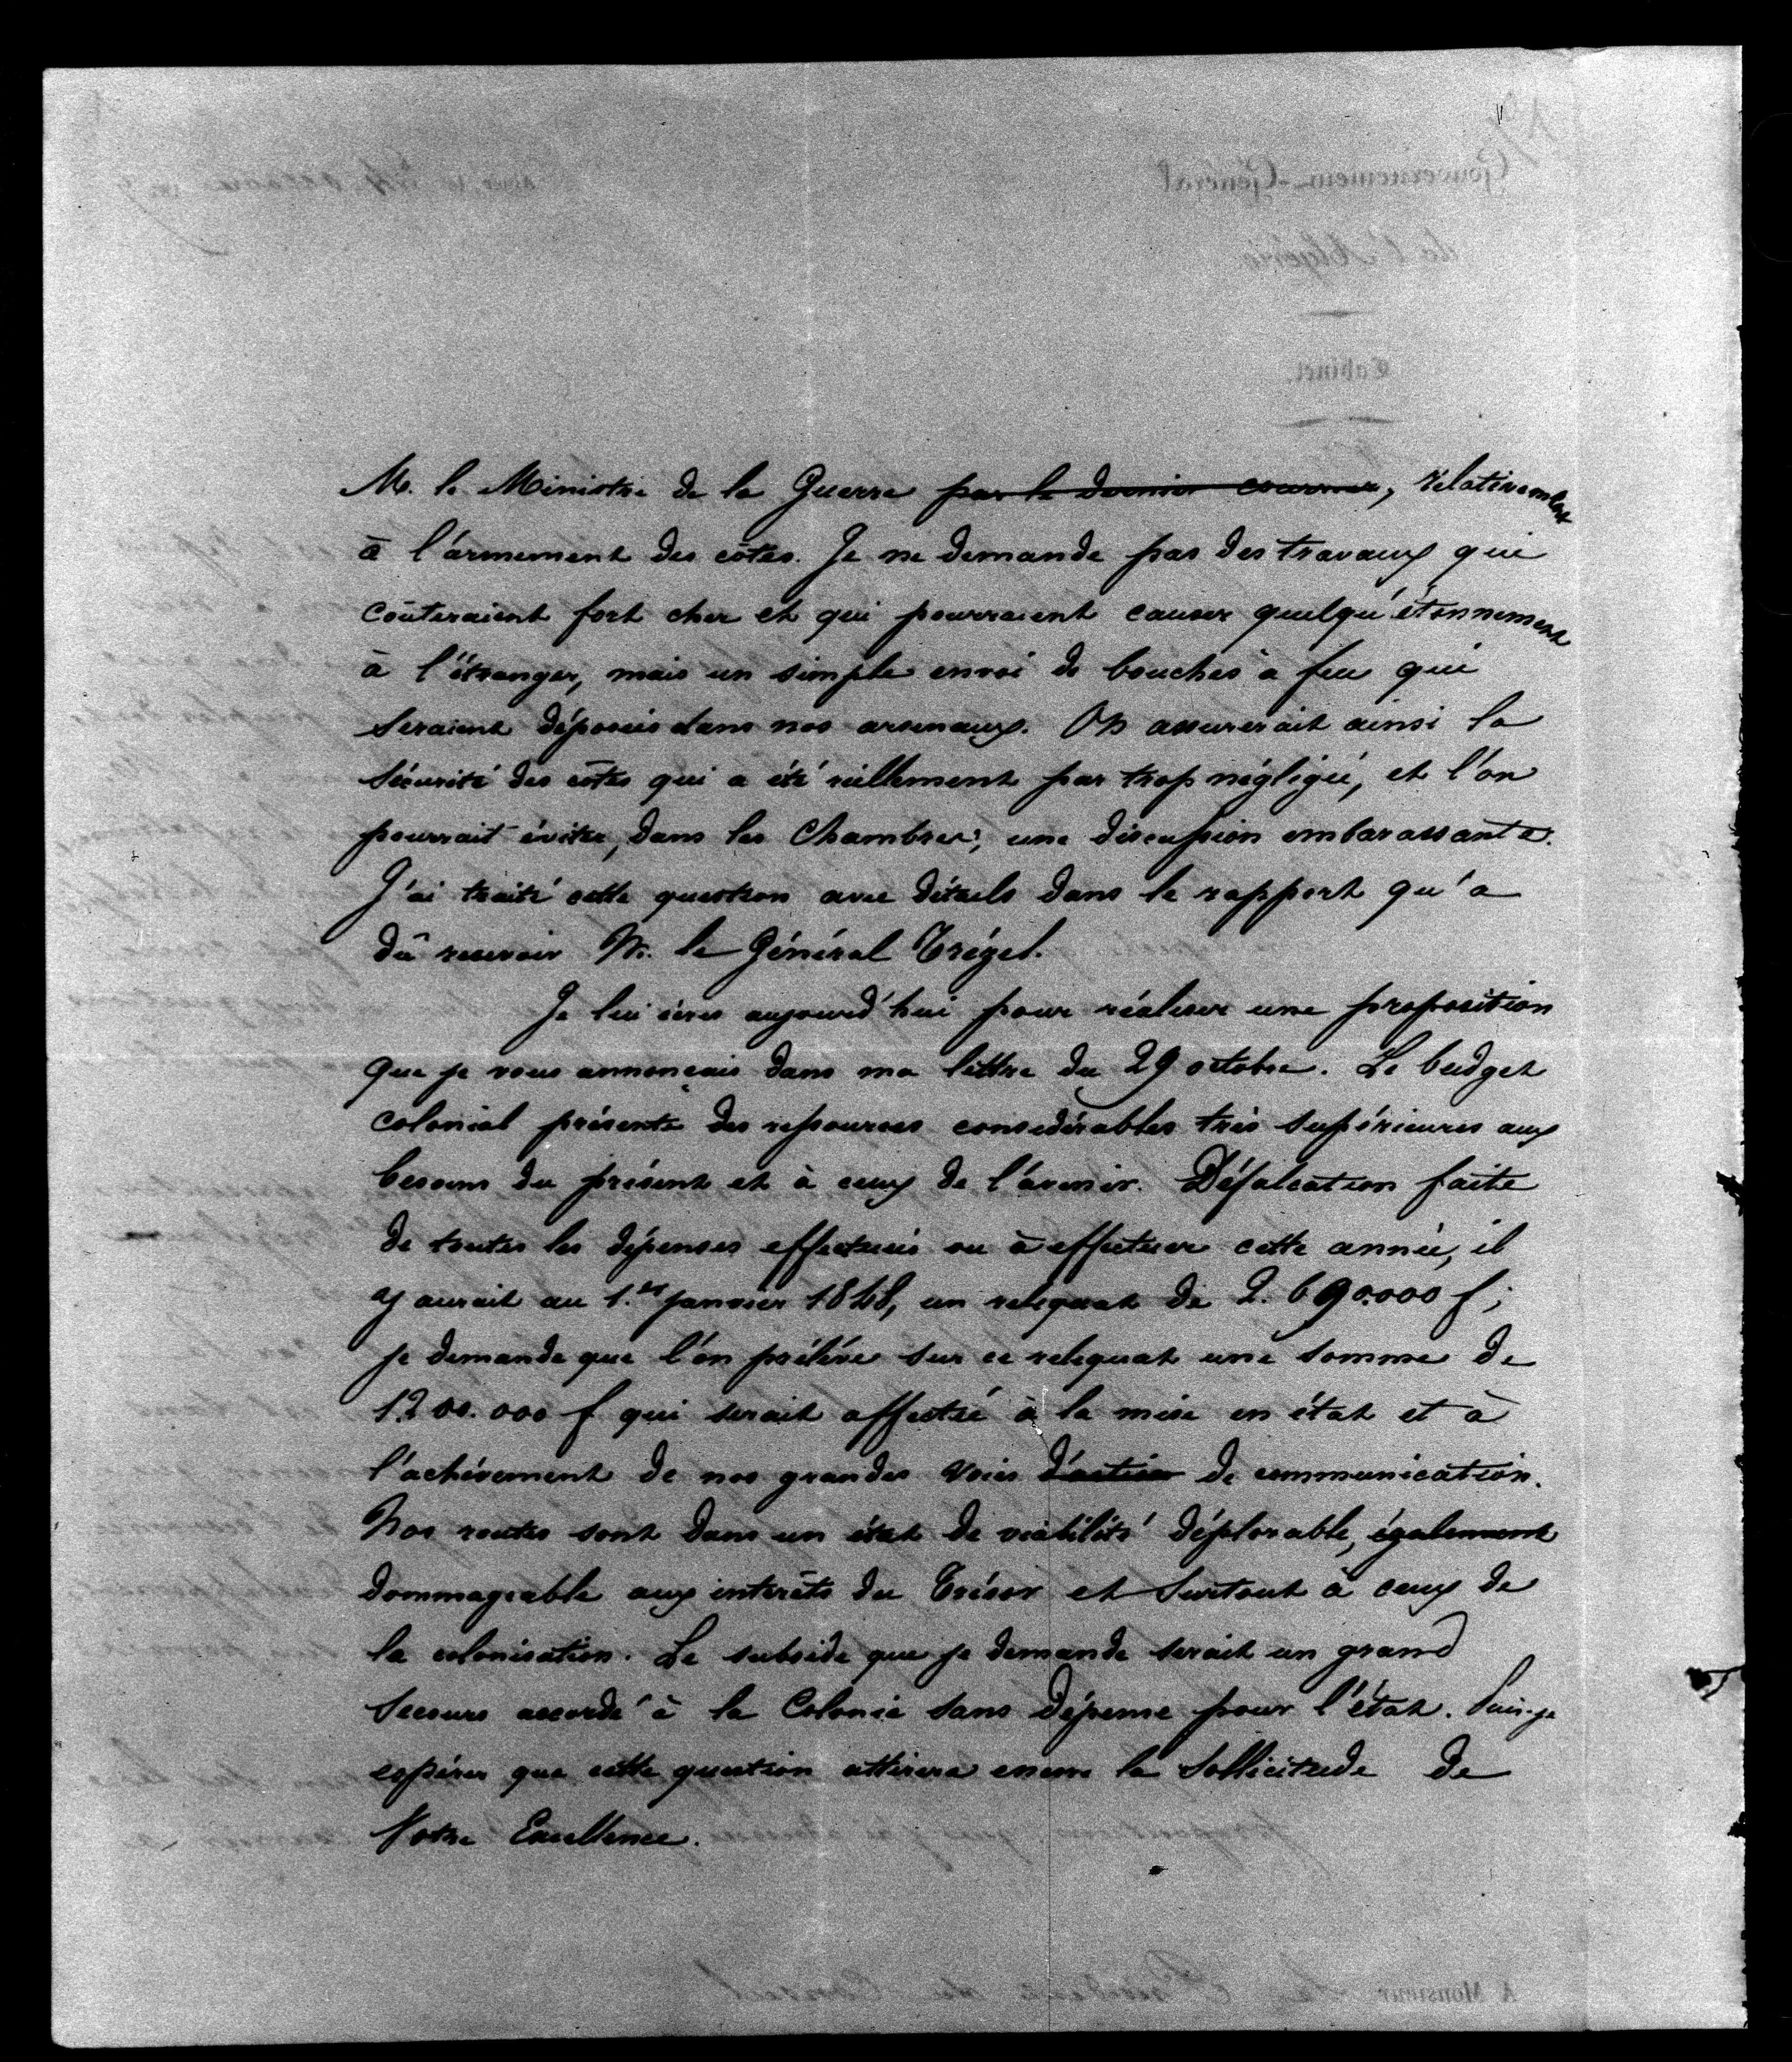 M. le Ministre de la Guerre par le dernier courrier, relativement
à l'armement des côtes. Je ne demande pas des travaux qui
coûteraient fort cher et qui pourraient causer quelqu'étonnement
à l'étranger, mais un simple envoi de bouches à feu qui
seraient déposées dans nos arsenaux. On assurerait ainsi la
sécurité des côtes qui a été réellement par trop négligée, et l'on
pourrait éviter, dans les Chambres, une discussion embarassante.
J'ai traité cette question avec détails dans le rapport qu'a
dû recevoir M. le Général Trézel.
Je lui écris aujourd'hui pour réaliser une proposition
que je vous annonçais dans ma lettre du 29 octobre. Le budget
colonial présente des ressources considérables très supérieures aux
besoins du présent et à ceux de l'avenir. Défalcation faite
de toutes les dépenses effectuées ou à effectuer cette année, il
y aurait au 1.er janvier 1848, un reliquat de 2.690.000 f;
je demande que l'on prélève sur ce reliquat une somme de
1200.000 f qui serait affecté à la mise en état et à
l'achèvement de nos grandes voies d'action de communication.
Nos routes sont dans un état de viabilité déplorable, également
dommageable aux intérêts du Trésor et surtout à ceux de
la colonisation. Le subside que je demande serait un grand
secours accordé à la Colonie sans dépense pour l'état. Puis-je
espérer que cette question attirera encore la sollicitude de
Votre Excellence.
Gouvernement-Général
de l'Algérie
Cabinet.
A Monsieur le Président du Conseil